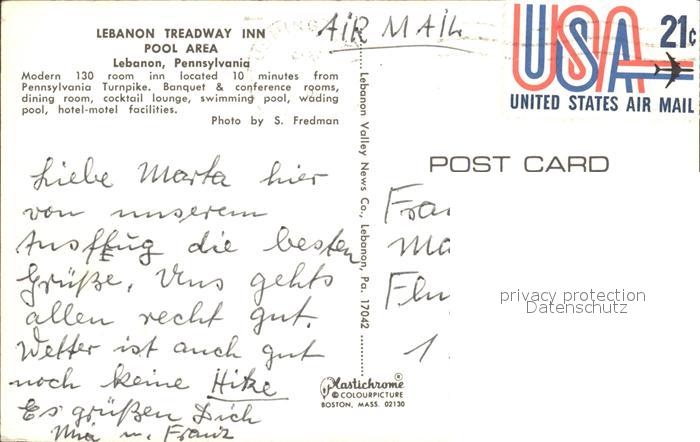 LEBANON TREADWAY INN
POOL AREA
Lebanon, Pennsylvania
Modern 130 room inn located 10 minutes from
Pennsylvania Turnpike. Banquet & conference rooms,
dining room, cocktail lounge, swimming pool, wading
pool, hotel-motel facilities.
Photo by S. Fredman
AIR MAIL
USA 21c
UNITED STATES AIR MAIL
Lebanon Valley News Co., Lebanon, Pa. 17042
POST CARD
Liebe Marta hier
von unserem
Ausflug die besten
Grüße, Uns gehts
allen recht gut.
Wetter ist auch gut
noch keine Hike
Es grüßen Dich
Mia u. Franz
Plastichrome®
© COLOURPICTURE
BOSTON, MASS. 02130
Frau
Ma
Flu
1
privacy protection
Datenschutz